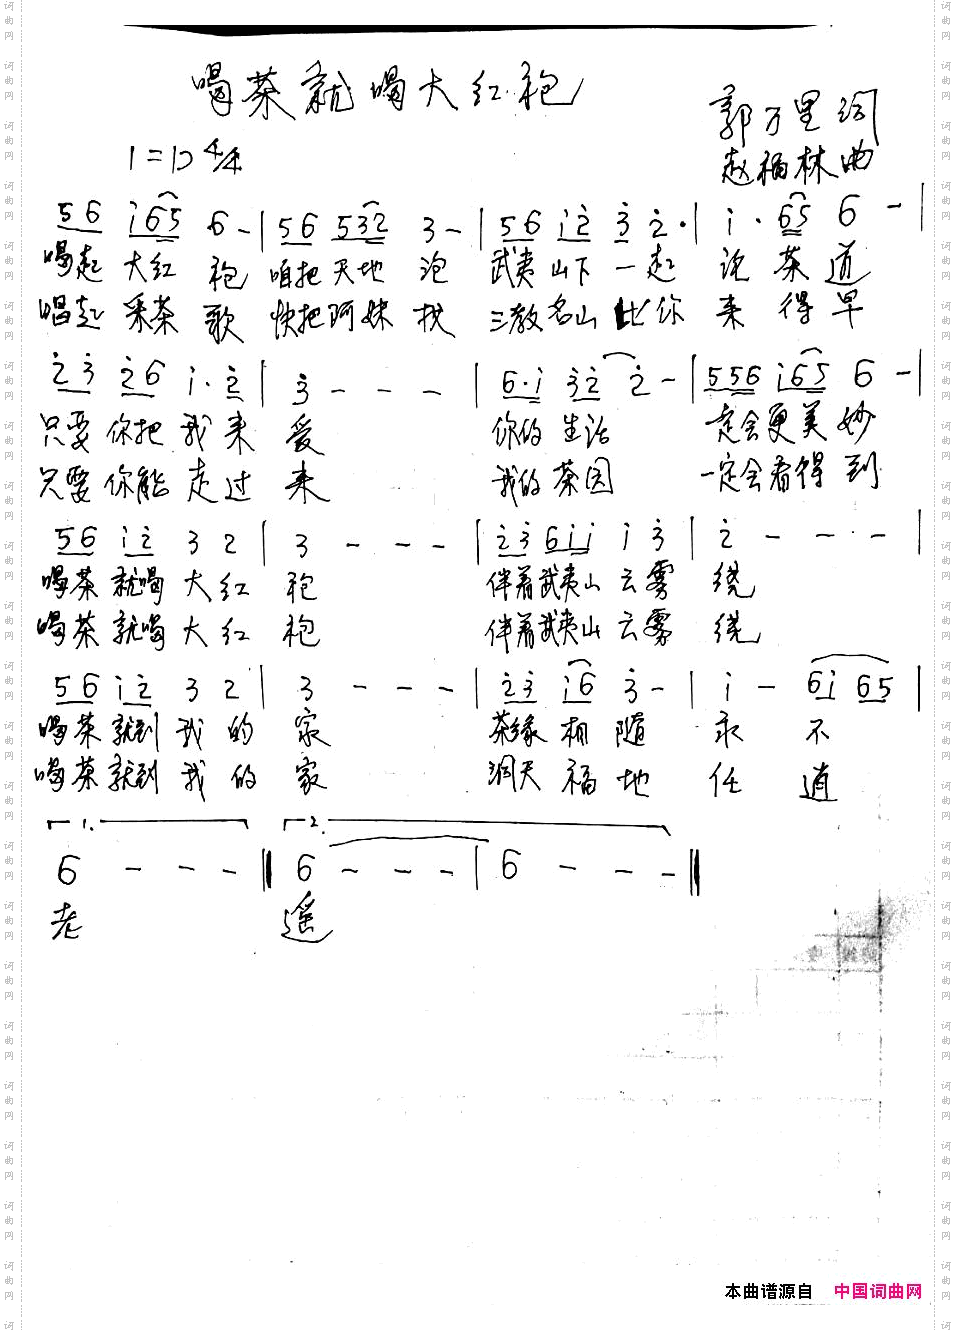 喝茶就喝大红袍
郭万里词
1=D 4/4
赵福林曲
56 i65 6 - | 56 532 3 - | 56 i2 3 2· | i· 65 6 - |
喝起 大红 袍 咱把 天地 泡 武夷 山下 一 起 论 茶 道
唱起 采茶 歌 快把 阿妹 找 三教 名山 比 你 来 得 早
23 26 i· 2 | 3 - - - | 6·i 32 2 - | 556 i65 6 - |
只要 你把 我 来 爱 你的 生活 一定会更美 妙
只要 你能 走 过 来 我的 茶园 一定会看得 到
56 i2 3 2 | 3 - - - | 23 6ii i 3 | 2 - - - |
喝茶 就喝 大 红 袍 伴着武夷山 云 雾 绕
喝茶 就喝 大 红 袍 伴着武夷山 云 雾 绕
56 i2 3 2 | 3 - - - | 23 i6 3 - | i - 6i 65 |
喝茶 就到 我 的 家 茶缘 相 随 永 不
喝茶 就到 我 的 家 洞天 福 地 任 逍
1. 2.
6 - - - || 6 - - - | 6 - - - ||
老 遥
本曲谱源自 中国词曲网